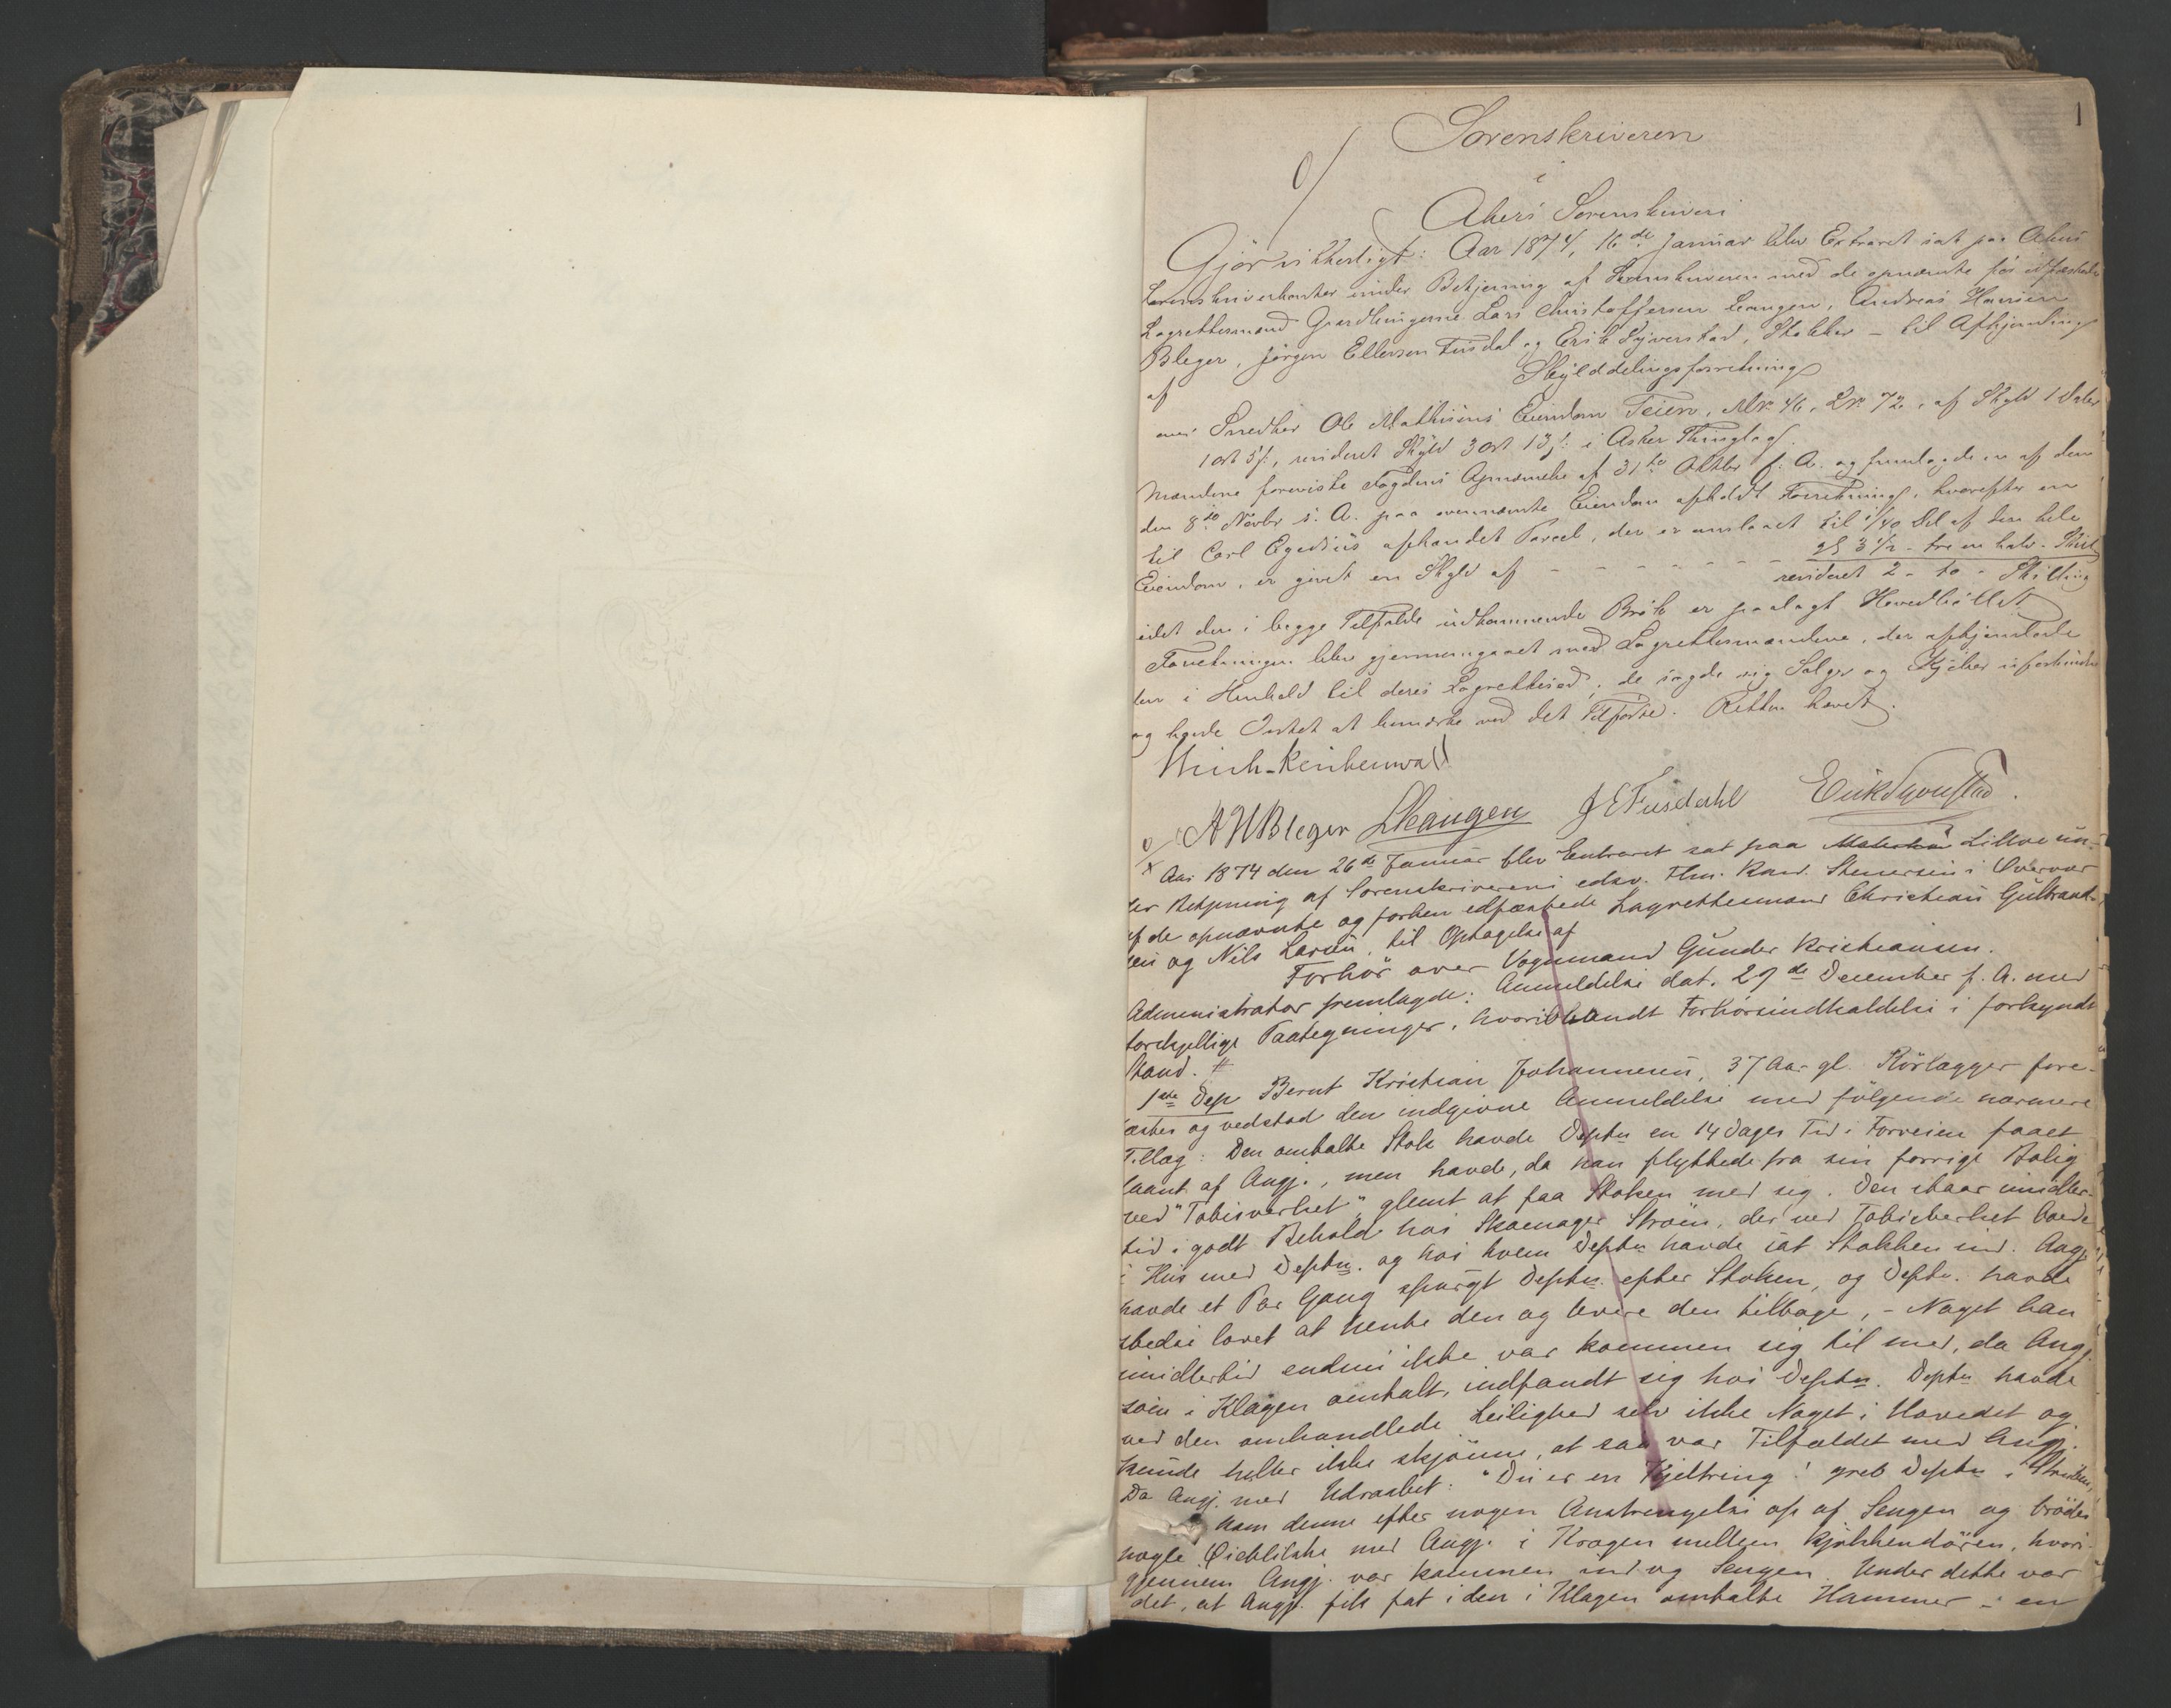 1
Sorenskriveren
i
Akers Sorenskriveri
Gjør vitterligt: Aar 1874, 16de Januar blev Extraret sat paa Akers
Sorenskriverkontor under Betjening af Sorenskriveren med de opnævnte før edfæstede
Lagrettesmænd Gaardbrugerne Lars Christoffersen Leangen, Andreas Hansen
Bleger, Jørgen Ellersen Fusdal og Erik Syverstad, Stokker - til Afhjemling
af
Skylddelingsforretning
over Snedker Ole Mathisens Eiendom Teien, Mr. 46, Lr. 72, af Skyld 1 Daler
1 ort 5 s:, revideret Skyld 3 Ort 13 s: i Asker Thinglag.
Mændene foreviste Fogdens Opnævnelse af 31te Oktbr f. A. og fremlagde en af dem
den 8de Novbr s. A. paa ovennævnte Eiendom afholdt Forretning, hvorefter en
til Carl Egedius afhændet Parcel, der er anslaaet til 1/40 Del af den hele
Eiendom, er givet en Skyld af - - - - - - 3 1/2 - tre en halv - Skill
revideret 2 - to - Skilling
idet den i begge Tilfælde udkommende Brøk er paalagt Hovedbøllet
Forretningen blev gjennemgaaet med Lagrettesmændene, der afhjemlede
den i Henhold til deres Lagrettesed; de sagde sig Sælger og Kjøber uforbundne
og havde Intet at bemærke ved det Tilførte. Retten hævet.
A H Bleger LLeangen J E Fusdahl Erik Syverstad.
Aar 1874 den 26de Januar blev Extraret sat paa Lilleø un-
der Betjening af Sorenskriverens edsv. Fm. Kand. Stenersen i Overvær
af de opnævnte og forhen edfæstede Lagrettesmænd Christian Gulbrand-
sen og Nils Larsen, til Optagelse af
Forhør over Vognmand Gunder Kristiansen.
Administrator fremlagde: Anmeldelse dat. 29de December f. A. med
forskjellige Paategninger, hvoriblandt Forhørsindkaldelse i forkyndt
Stand. #
1ste Dep Bernt Kristian Johannesen, 37 Aar gl. Rørlægger fore-
æstes og vedstod den indgivne Anmeldelse med følgende nærmere
Tillæg: Den omtalte Stok havde Deptn en 14 Dages Tid i Forveien faaet
laant af Angj., men havde, da han flyttede fra sin forrige Bolig
ved "Tobisverket", glemt at faa Stokken med sig. Den staar imidler-
tid i godt Behold hos Skomager Strøm, der ved Tobisverket boede
i Hus med Deptn. og hos hvem Deptn havde sat Stokken ind. Angj.
havde et Par Gang spurgt Deptn. efter Stokken, og Deptn. havde
stedse lovet at hente den og levere den tilbage, - Noget han
imidlertid endnu ikke var kommen sig til med, da Angj.
som i Klagen omtalt, indfandt sig hos Deptn. Deptn havde
ved den omhandlede Leilighed selv ikke Noget i Hovedet og
kunde heller ikke skjønne, at saa var Tilfældet med Angj.
Da Angj. med Udraabet: "Du er en Kjeltring! greb Deptn i Struben,
kom denne efter nogen Anstrengelse op af Sengen og brødes
nogle Øieblikke med Angj. i Krogen mellem Kjøkkendøren, hvori-
gjennem Angj. var kommen ind og Sengen. Under dette var
det, at Angj. fik fat i den i Klagen omtalte Hammer - en